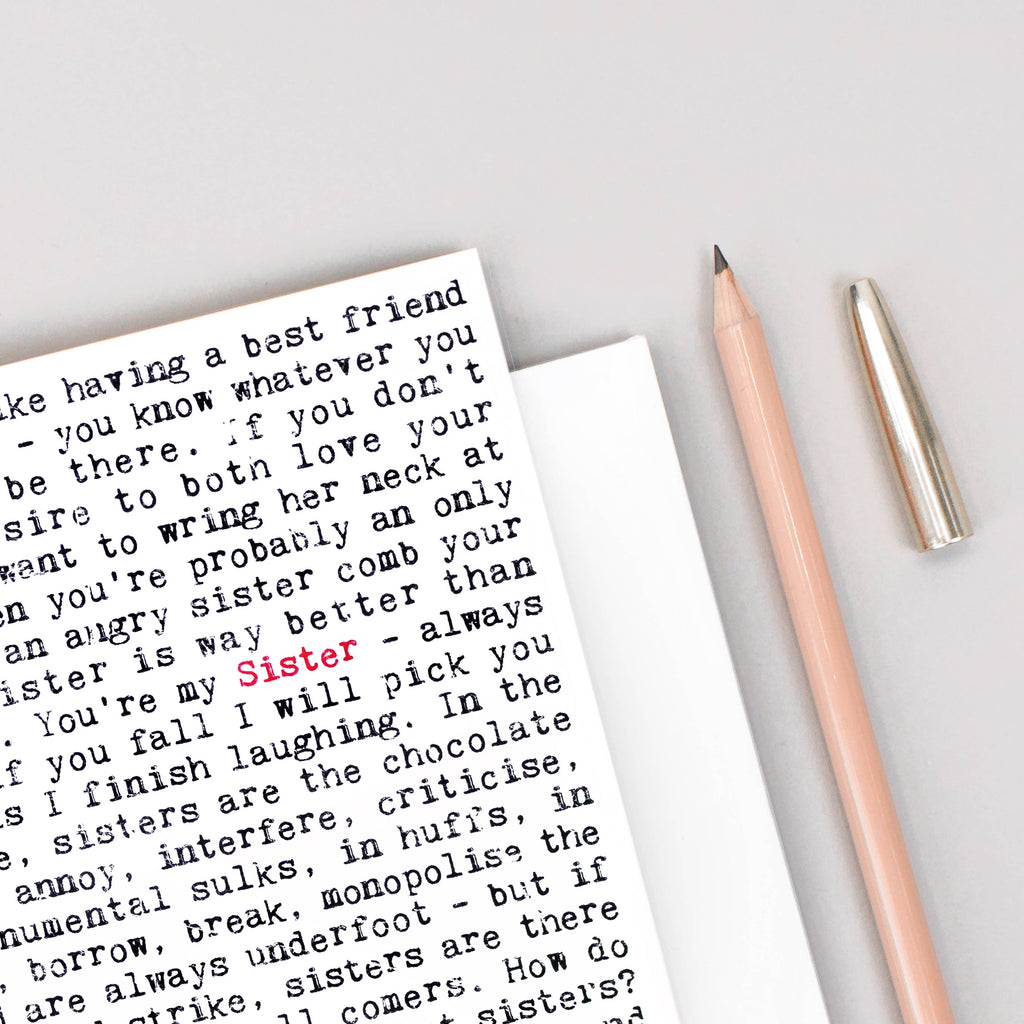 ke having a best friend
- you know whatever you
be there. If you don't
sire to both love your
want to wring her neck at
en you're probably an only
an angry sister comb your
ister is way better than
. You're my Sister - always
if you fall I will pick you
s I finish laughing. In the
e, sisters are the chocolate
annoy, interfere, criticise,
numental sulks, in huffs, in
, borrow, break, monopolise the
are always underfoot - but if
strike, sisters are there
comers. How do
sisters?